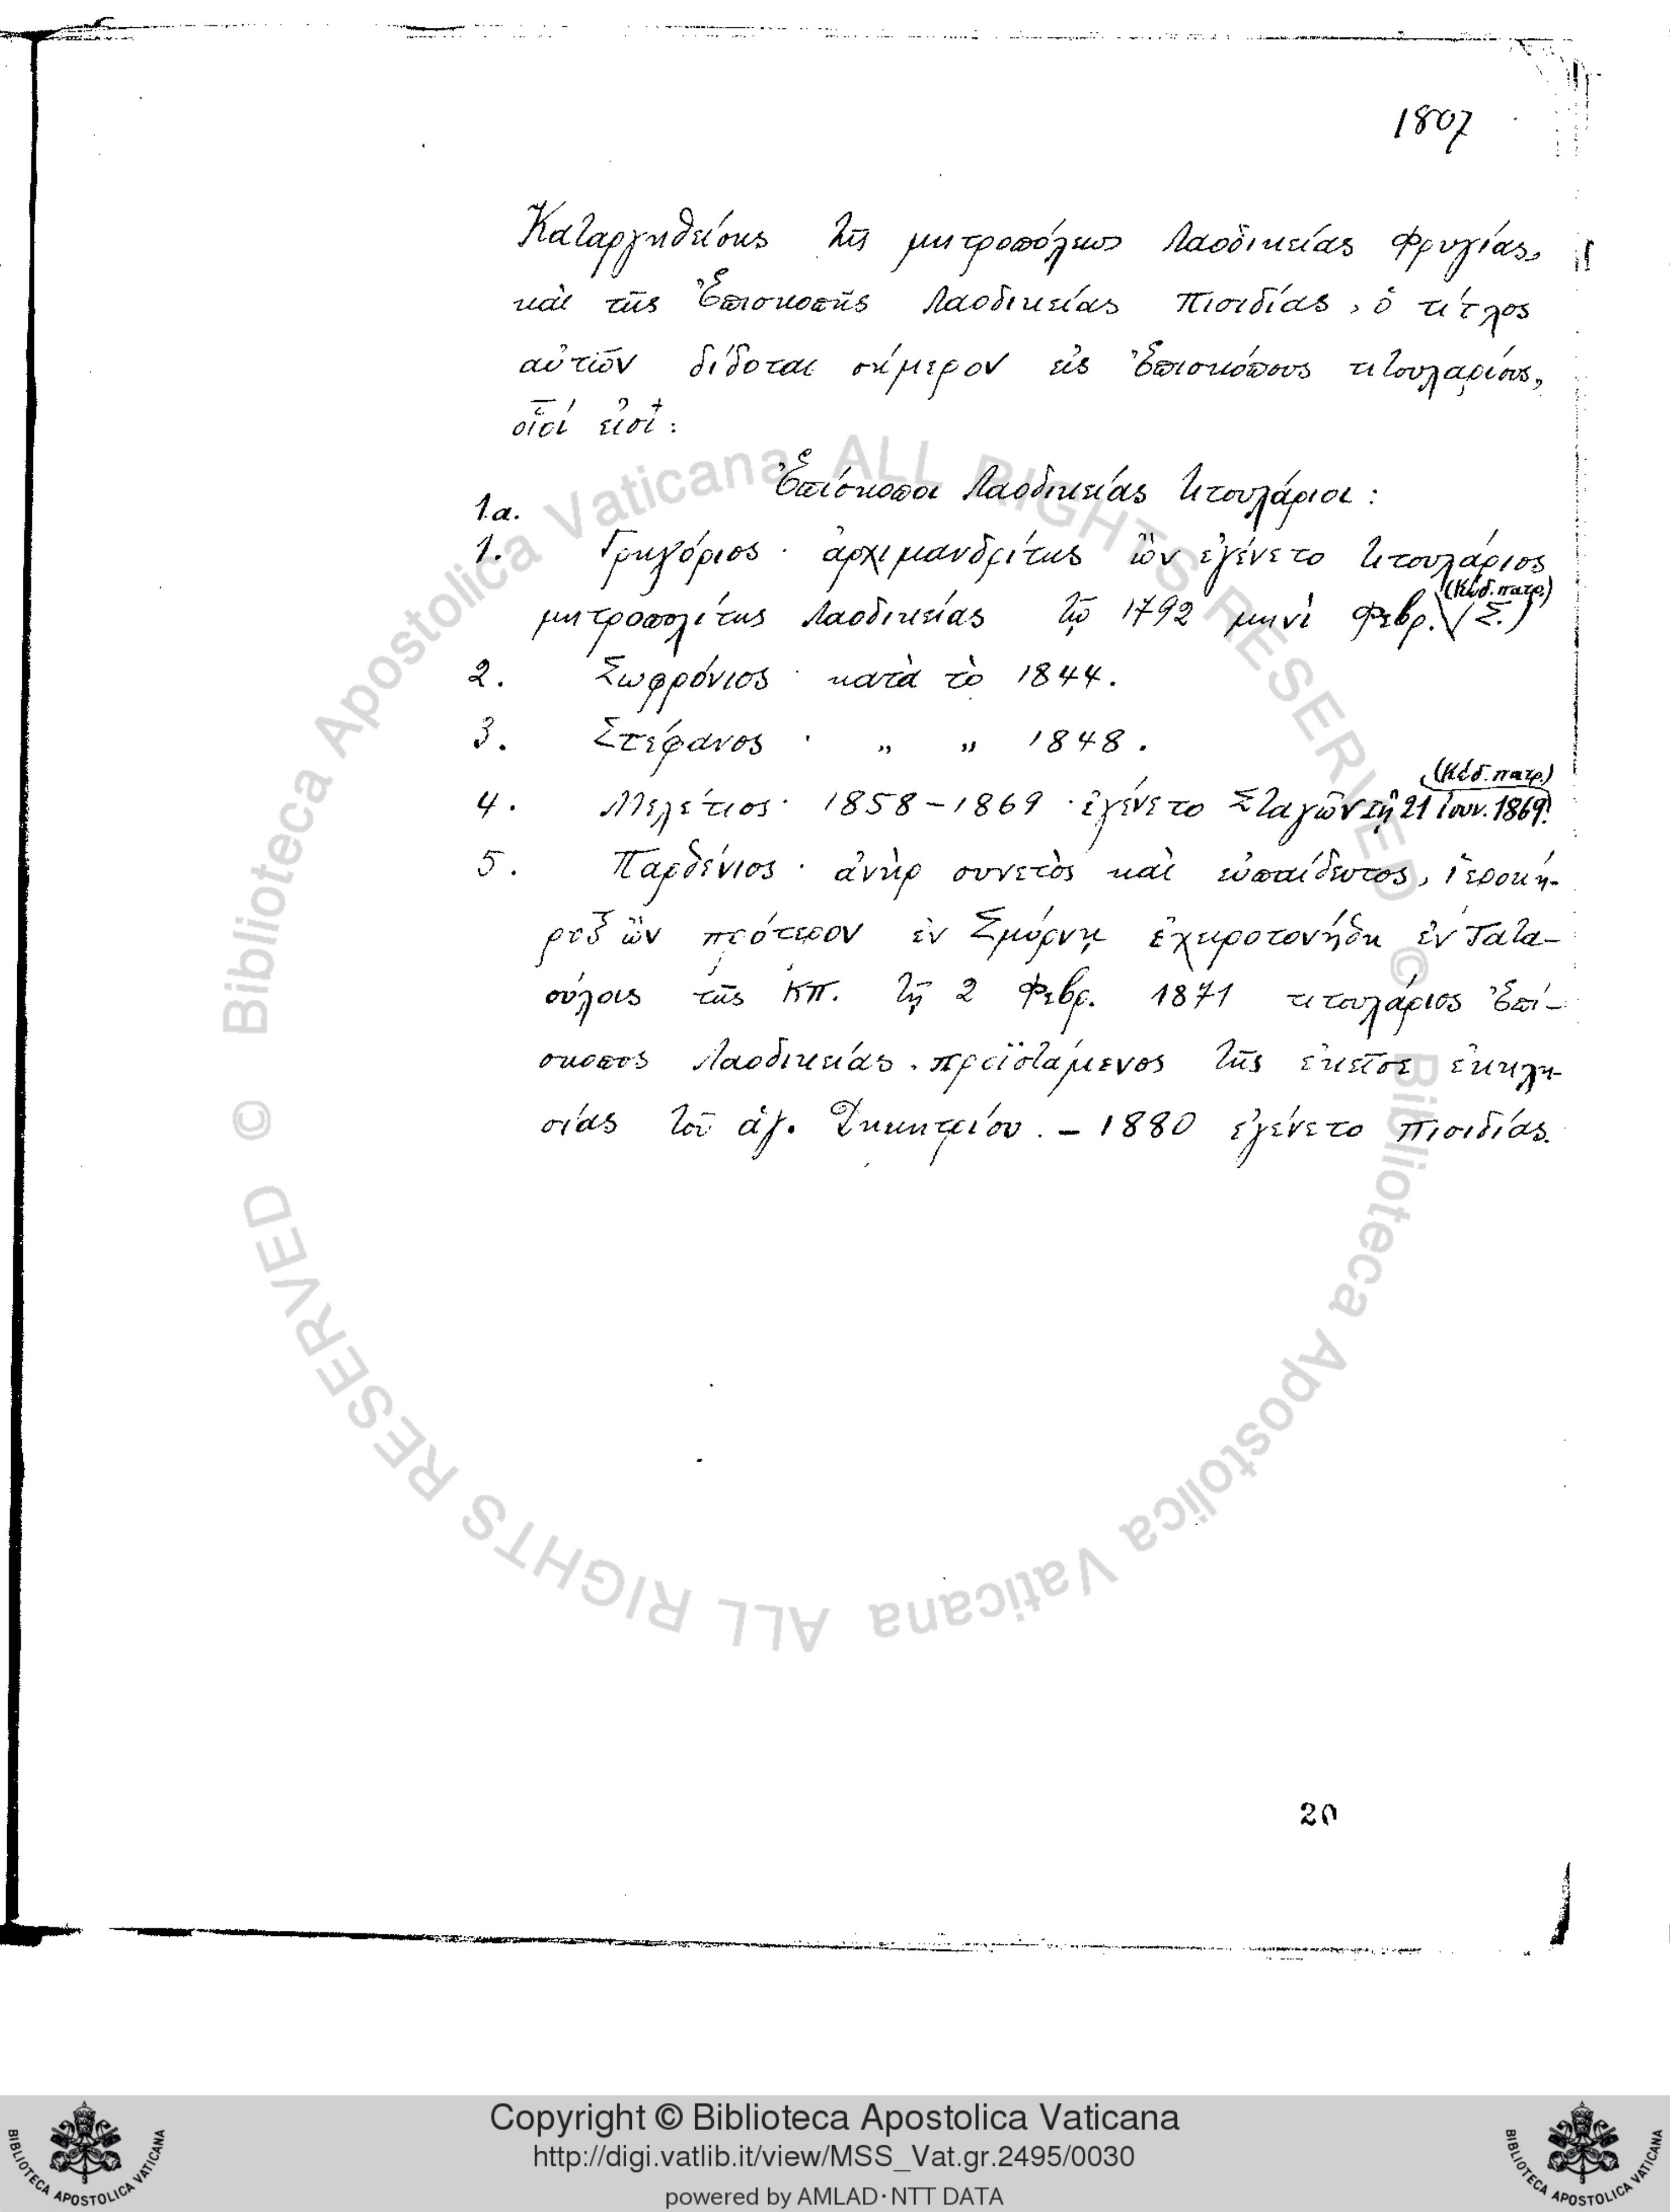 1807
Καταργηθείσης τῆς μητροπόλεως Λαοδικείας Φρυγίας,
καὶ τῆς Ἐπισκοπῆς Λαοδικείας Πισιδίας, ὁ τίτλος
αὐτῶν δίδοται σήμερον εἰς Ἐπισκόπους τιτουλαρίους,
οἷοί εἰσι:
Ἐπίσκοποι Λαοδικείας τιτουλάριοι:
1.α.
1. Γρηγόριος · ἀρχιμανδρίτης ὢν ἐγένετο τιτουλάριος
(Κώδ. πατρ.)
μητροπολίτης Λαοδικείας τῷ 1792 μηνὶ Φεβρ. (Σ.)
2. Σωφρόνιος · κατὰ τὸ 1844.
3. Στέφανος · „ „ 1848.
(Κώδ. πατρ.)
4. Μελέτιος · 1858-1869 · ἐγένετο Σταγῶν τῇ 21 Ἰουν. 1869.
5. Παρθένιος · ἀνὴρ συνετὸς καὶ εὐπαίδευτος, ἱεροκή-
ρυξ ὢν πρότερον ἐν Σμύρνῃ ἐχειροτονήθη ἐν ΤαTα-
ούλοις τῆς ΚΠ. τῇ 2 Φεβρ. 1871 τιτουλάριος Ἐπί-
σκοπος Λαοδικείας. προϊστάμενος τῆς ἐκεῖσε ἐκκλη-
σίας τοῦ ἁγ. Δημητρίου. - 1880 ἐγένετο Πισιδίας.
20
© Biblioteca Apostolica Vaticana ALL RIGHTS RESERVED
© Biblioteca Apostolica Vaticana ALL RIGHTS RESERVED
BIBLIOTECA APOSTOLICA VATICANA
Copyright © Biblioteca Apostolica Vaticana
http://digi.vatlib.it/view/MSS_Vat.gr.2495/0030
powered by AMLAD·NTT DATA
BIBLIOTECA APOSTOLICA VATICANA